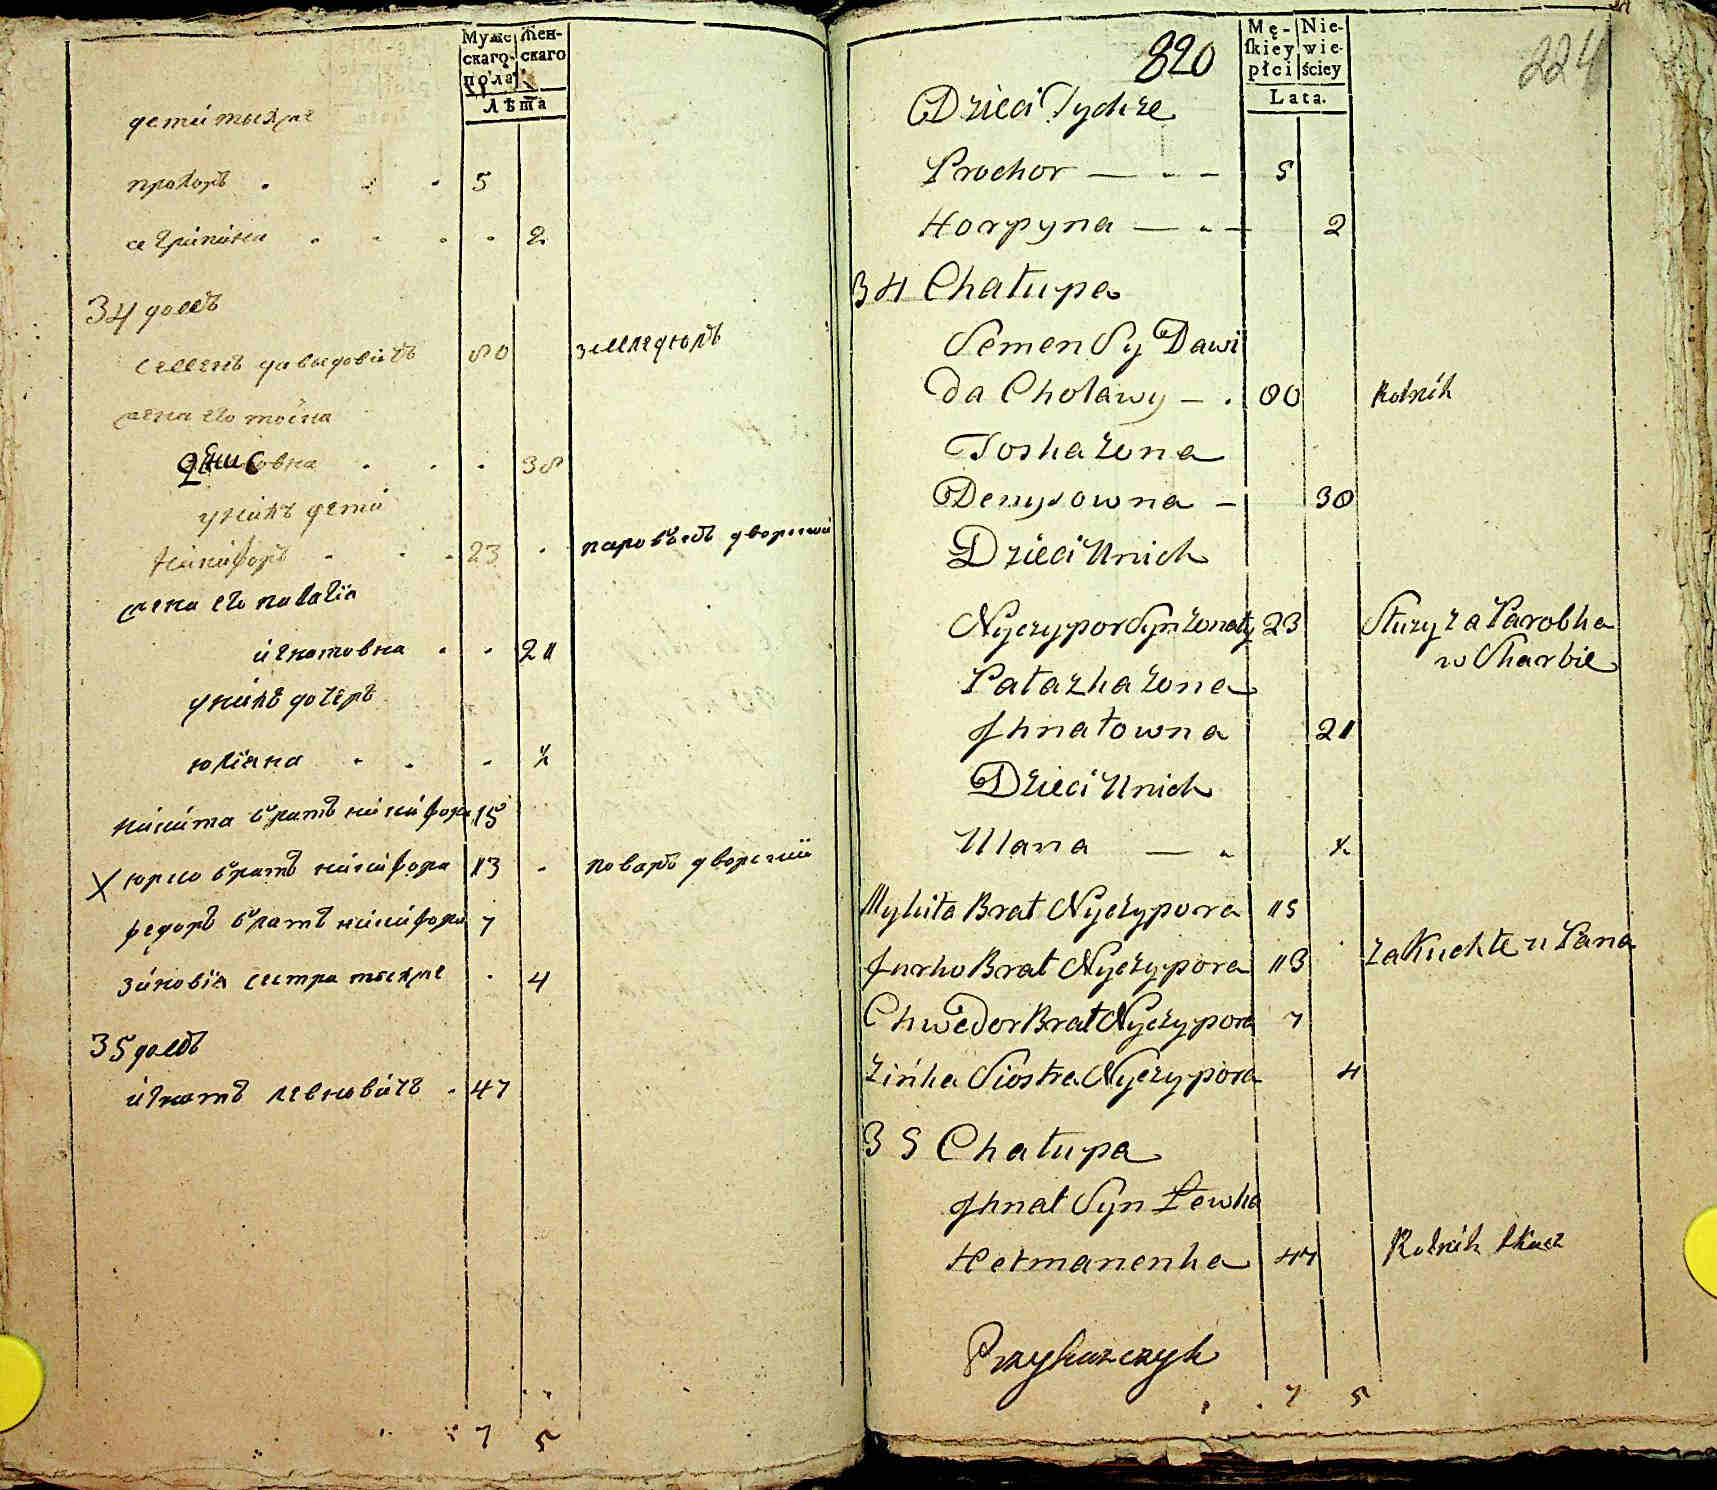 Мужс
скаго
пола
Жен-
скаго
Лѣта
дети тыхже
прохоръ . . . 5
агрипина . . . . 2
34 домъ
семенъ давыдовичъ 80 земледелъ
жена его тоска
Денисовна . . . 38
унихъ дети
никифоръ . . . 23 . паробокъ дворский
жена его палагія
игнатовна . . 21
унихъ дочеръ
юліана . . . ½
никита братъ никифора 15
X юрко братъ никифора 13 . поваръ дворский
федоръ братъ никифора 7
зиновія сестра тыхже . 4
35 домъ
игнатъ левковичъ . 47
7 5
820
224
Mę-
skiey
płci
Nie-
wie-
ściey
Lata.
Dzieci Tychże
Prochor — - — 5
Horpyna — - — 2
34 Chałupa
Semen Sy Dawi
da Cholawy — . 80 Rolnik
Toska żona
Denysowna — 38
Dzieci Unich
Nyczypor Syn żonaty 23 Służy za Parobka
w Skarbie
Pałazka żona
Jhnatowna 21
Dzieci Unich
Ulana — - ½
Mykita Brat Nyczypora 15
Jurko Brat Nyczypora 13 za Kuchte u Pana
Chwedor Brat Nyczypora 7
Zińka Siostra Nyczypora 4
35 Chałupa
Jhnat Syn Lewka
Hetmanenka 47 Rolnik tkacz
7 5